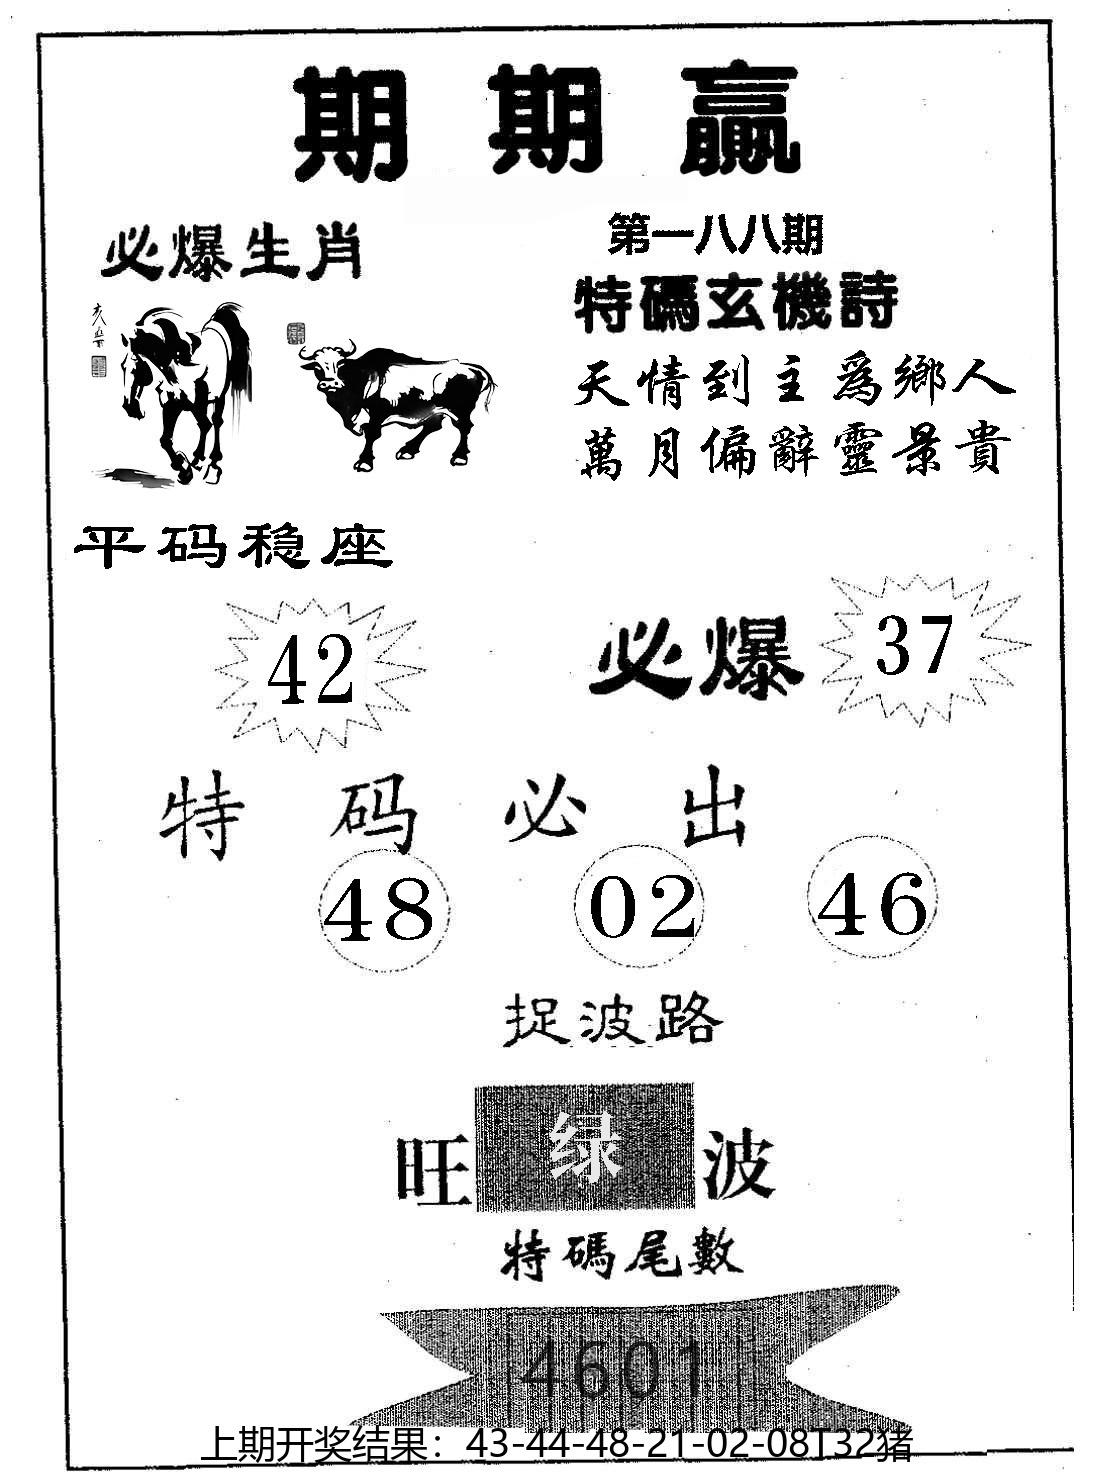 期期贏
必爆生肖
第一八八期
特碼玄機詩
天情到主為鄉人
萬月偏辭靈景貴
平码稳座
42
必爆
37
特码必出
48 02 46
捉波路
旺绿波
特碼尾數
4601
上期开奖结果：43-44-48-21-02-08T32猪